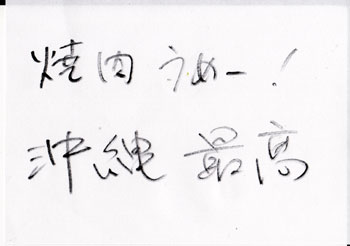 焼肉うめー!
沖縄 最高